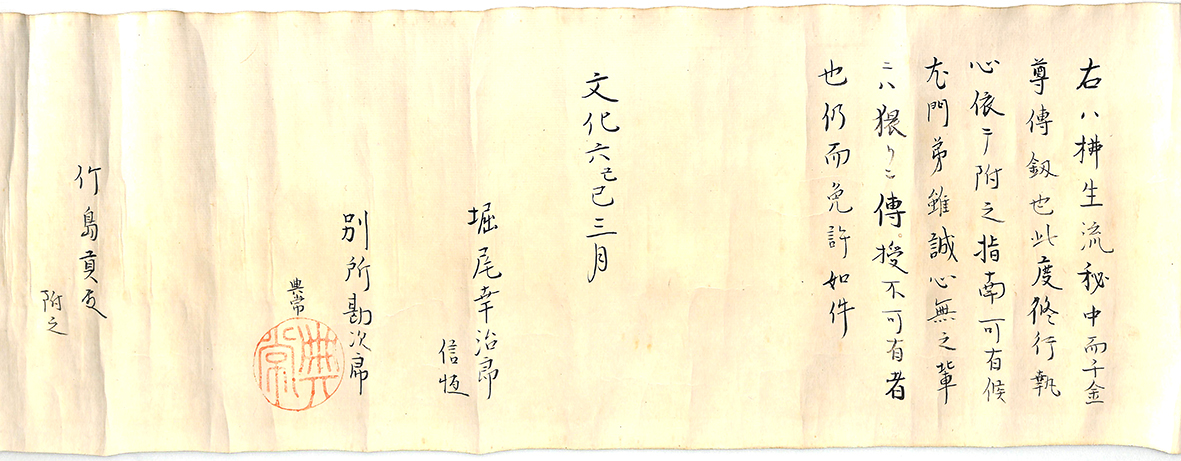 右ハ柹生流秘中而千金
尊傳釼也此度修行執
心依テ附之指南可有候
尤門弟雖誠心無之輩
ニハ猥リニ傳授不可有者
也仍而免許如件
文化六己巳三月
堀尾幸治郎
信恆
別所勘次郎
典常
典常
竹島貢
附之